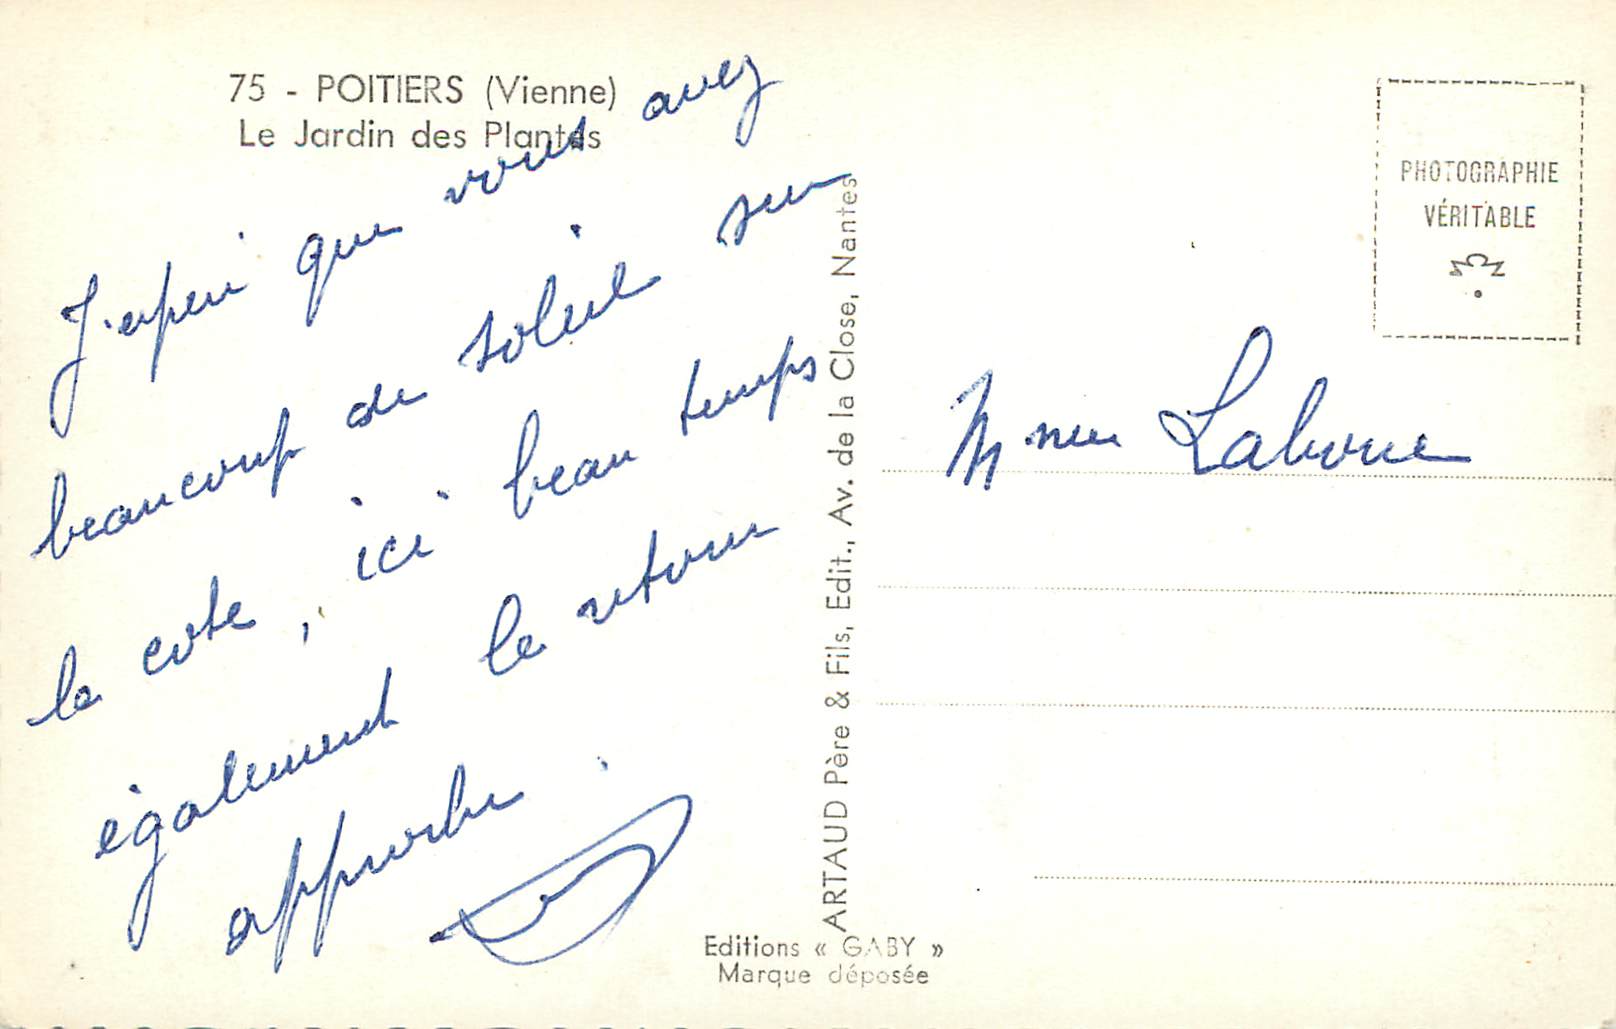 75 - POITIERS (Vienne)
Le Jardin des Plantes
J'espère que vous avez
beaucoup de soleil sur
la cote, ici beau temps
également le retour
approche.
ARTAUD Père & Fils, Edit., Av. de la Close, Nantes
Editions « GABY »
Marque déposée
PHOTOGRAPHIE
VÉRITABLE
Mme Laborie